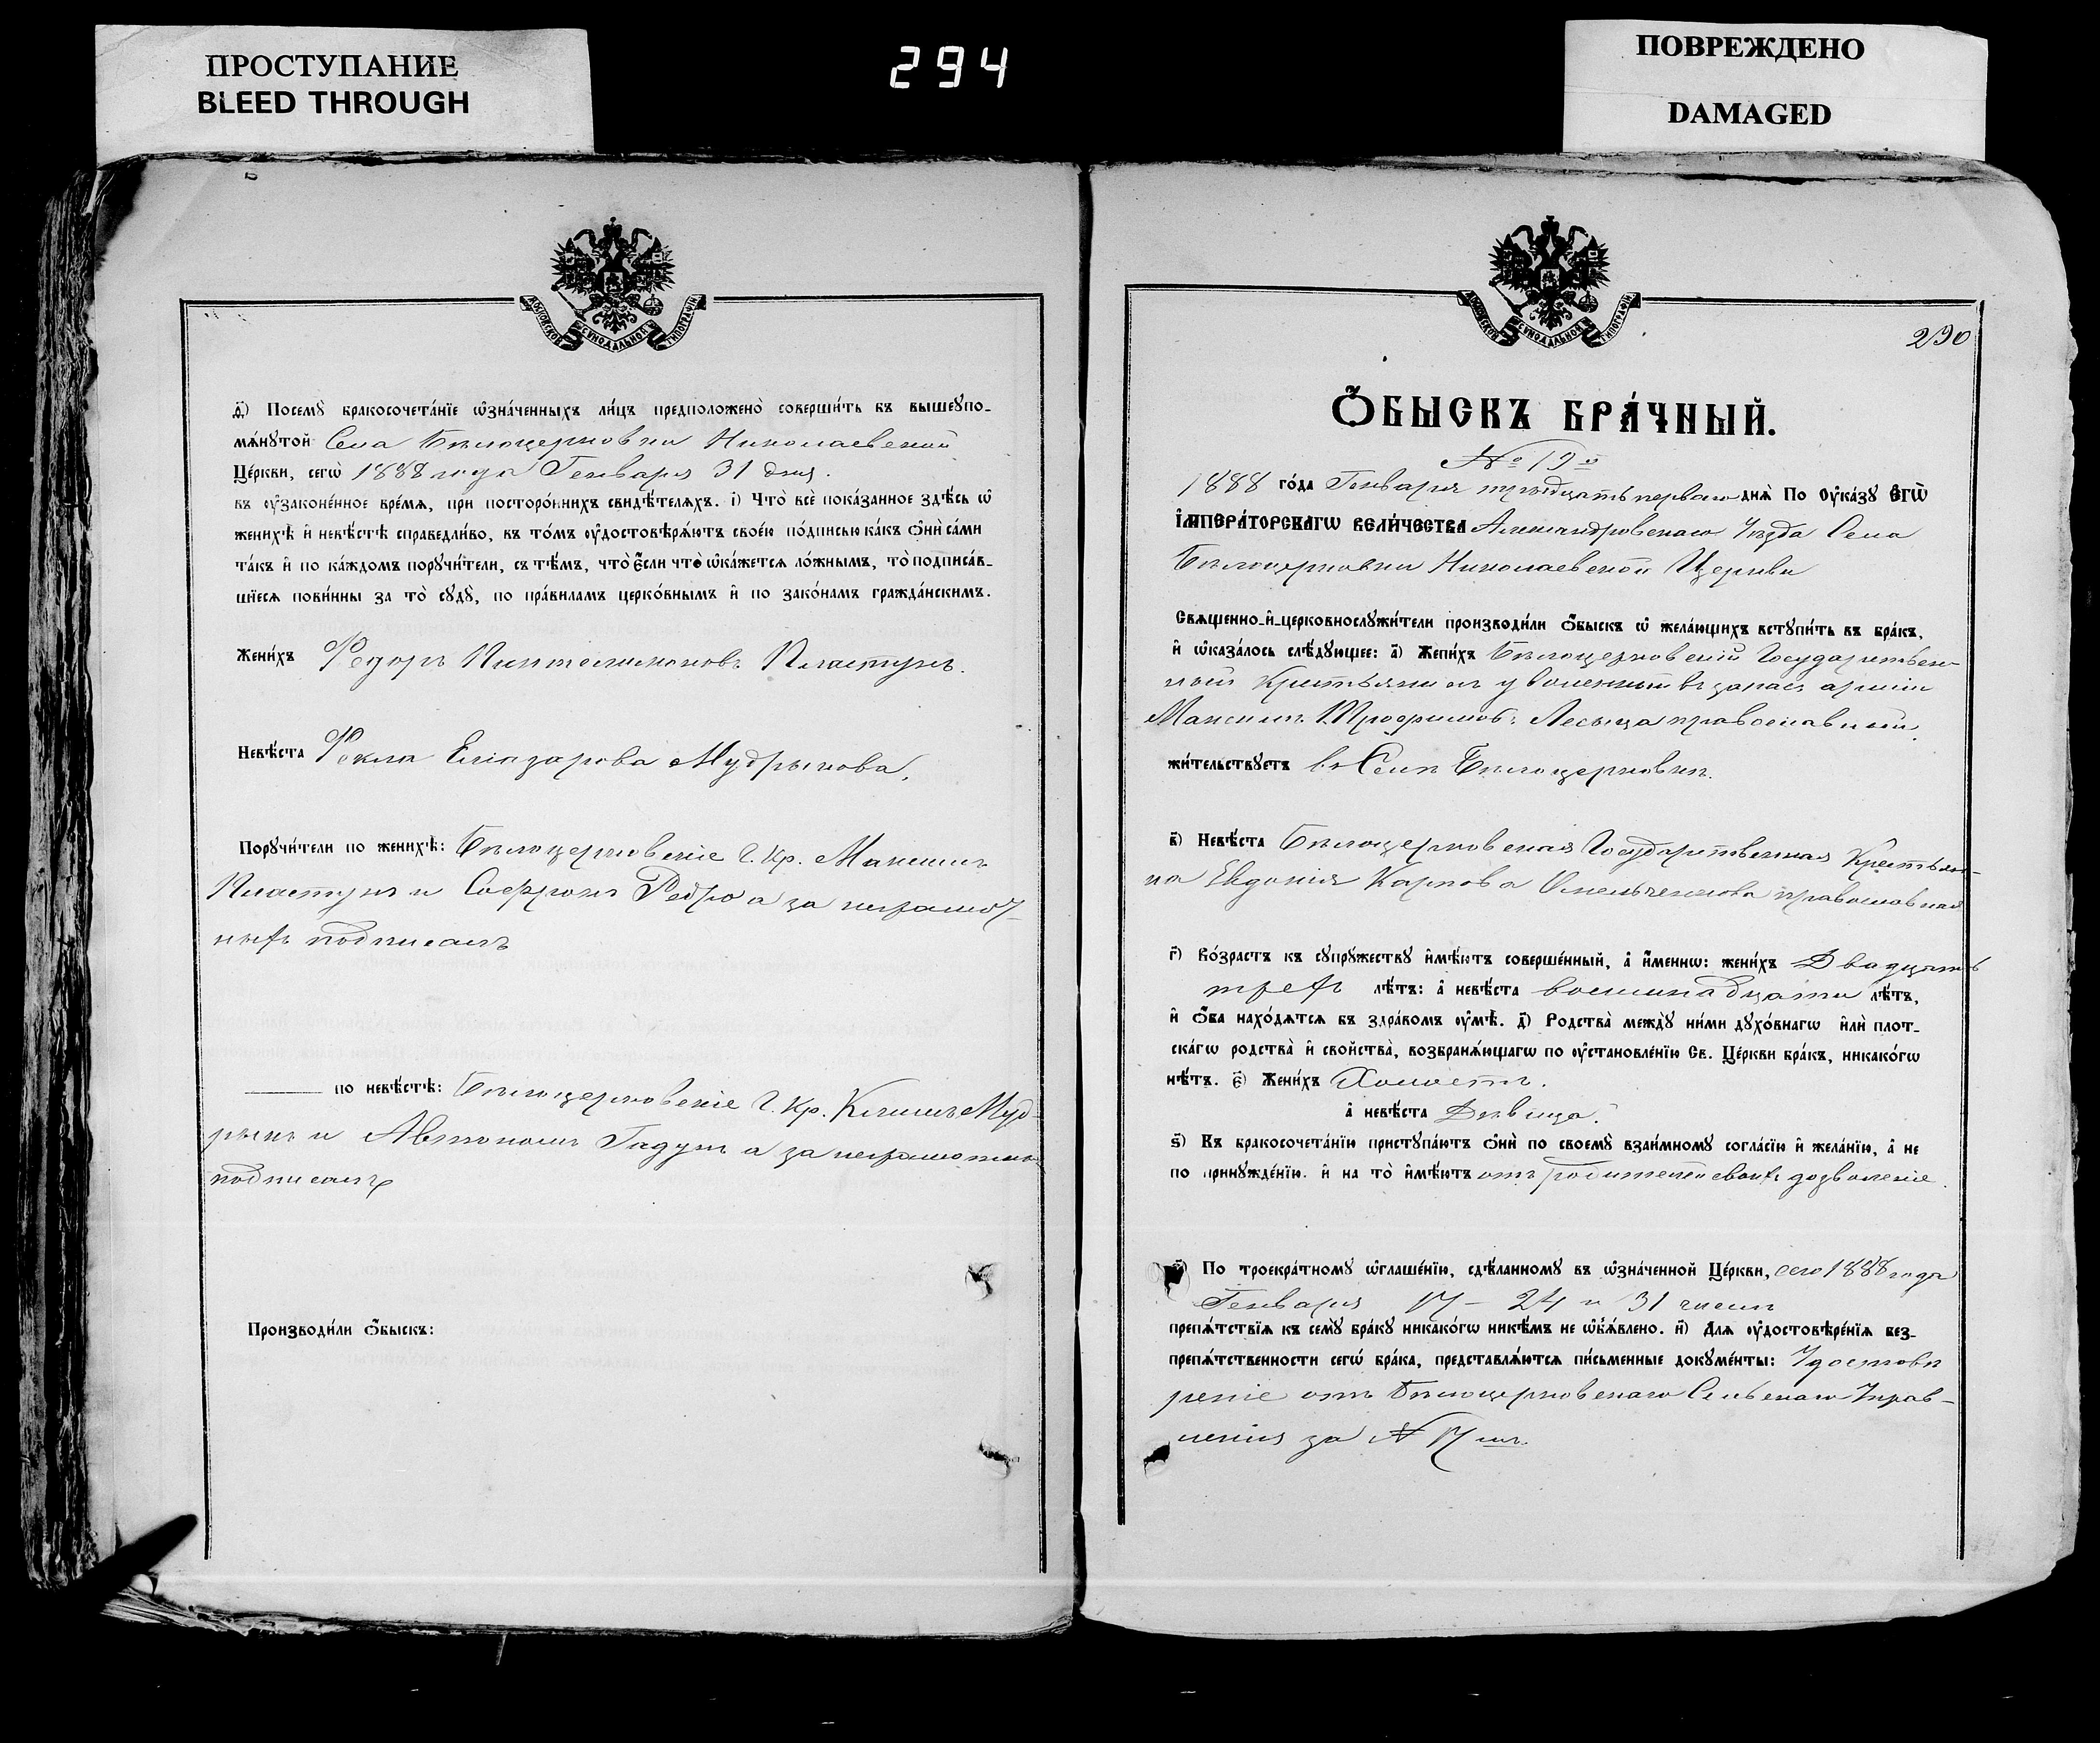 ПРОСТУПАНИЕ
BLEED THROUGH
294
ПОВРЕЖДЕНО
DAMAGED
МОСКОВСКОЙ СѴНОДАЛЬНОЙ ТИПОГРАФІИ
д҃і) Посемꙋ̀ бракосочета́нїе ѡ҆зна́ченныхъ ли́цъ предположено̀ соверши́ть въ вышеꙋпо-
мѧ́нꙋтой Села Бѣлоцерковки Николаевской
Це́ркви, сегѡ̀ 1888 года Генваря 31 дня.
въ ᲂу҆зако́ненное вре́мѧ, при посторо́ннихъ свидѣ́телѧхъ. і҃) Что̀ всѐ пока́занное здѣ́сь ѡ҆
женихѣ̀ и҆ невѣ́стѣ справедли́во, въ то́мъ ᲂу҆достовѣрѧ́ютъ свое́ю по́дписью ка́къ ѻ҆нѝ са́ми
та́къ и҆ по ка́ждомъ порꙋчи́тели, съ тѣ́мъ, что̀ є҆́сли что̀ ѡ҆ка́жетсѧ ло́жнымъ, то̀ подписа́в-
шїесѧ пови́нны за то̀ сꙋдꙋ̀, по пра́виламъ церко́внымъ и҆ по зако́намъ гражда́нскимъ.
Жени́хъ Федоръ Пантелимоновъ Пластунъ.
Невѣ́ста Фекла Еліазарова Мудрыкова,
Порꙋчи́тели по женихѣ̀: Бѣлоцерковскіе Г. Кр. Максимъ
Пластунъ и Софронъ Редро а за неграмот-
ныхъ подписалъ
по невѣ́стѣ: Бѣлоцерковскіе Г. Кр. Климъ Муд-
рыкъ и Автономъ Гадунъ а за неграмотныхъ
подписалъ
Производи́ли ѻ҆́быскъ:
МОСКОВСКОЙ СѴНОДАЛЬНОЙ ТИПОГРАФІИ
290
Ѻ҆́БЫСКЪ БРА́ЧНЫЙ.
№ 19й
1888 го́да Генваря тридцать перваго днѧ̀ По ᲂу҆ка́зꙋ Є҆ГѠ̀
І҆МПЕРА́ТОРСКАГѠ ВЕЛИ́ЧЕСТВА Александровскаго Уѣзда Села
Бѣлоцерковки Николаевской Церкви
Свѧщенно-и҆-церковнослꙋжи́тели производи́ли ѻ҆́быскъ ѡ҆ жела́ющихъ встꙋпи́ть въ бра́къ,
и҆ ѡ҆каза́лось слѣ́дꙋющее: а҃) Жени́хъ Бѣлоцерковскій Государствен-
ный Крестьянинъ уволенный въ запасъ арміи
Максимъ Трофимовъ Лесыца православный.
жи́тельствꙋетъ въ Селѣ Бѣлоцерковки.
в҃) Невѣ́ста Бѣлоцерковская Государственная Крестьян-
ка Евдокія Карпова Омельченкова православная
г҃) Во́зрастъ къ сꙋпрꙋ́жествꙋ и҆мѣ́ютъ соверше́нный, а҆ и҆́меннѡ: жени́хъ Двадцать
трехъ лѣ́тъ: а҆ невѣ́ста восминадцати лѣ́тъ,
и҆ ѻ҆́ба нахо́дѧтсѧ въ здра́вомъ ᲂу҆мѣ̀. д҃) Родства̀ междꙋ̀ ни́ми дꙋхо́внагѡ и҆лѝ плот-
ска́гѡ родства̀ и҆ сво́йства̀, возбранѧ́ющагѡ по ᲂу҆становле́нїю Св. Це́ркви бра́къ, никако́гѡ
нѣ́тъ. є҃) Жени́хъ Холостъ.
а҆ невѣ́ста Дѣвица.
ѕ҃) Къ бракосочета́нїю пристꙋпа́ютъ ѻ҆нѝ по своемꙋ̀ взаи́мномꙋ согла́сїю и҆ жела́нїю, а҆ не
по принꙋжде́нїю. и҆ на то̀ и҆мѣ́ютъ отъ родителей своихъ дозволеніе.
По троекра́тномꙋ ѡ҆глаше́нїю, сдѣ́ланномꙋ въ ѡ҆зна́ченной Це́ркви, сего 1888 года
Генваря 17 - 24 и 31 числъ
препѧ́тствїѧ къ семꙋ̀ бра́кꙋ никако́гѡ никѣ́мъ не ѡ҆б̾ѧ́влено. и҃) Длѧ ᲂу҆достовѣре́нїѧ без-
препѧ́тственности сегѡ̀ бра́ка, представлѧ́ютсѧ пи́сьменные докꙋме́нты: Удостовѣ
реніе отъ Бѣлоцерковскаго Сельскаго Управ-
ленія за № 17мъ.